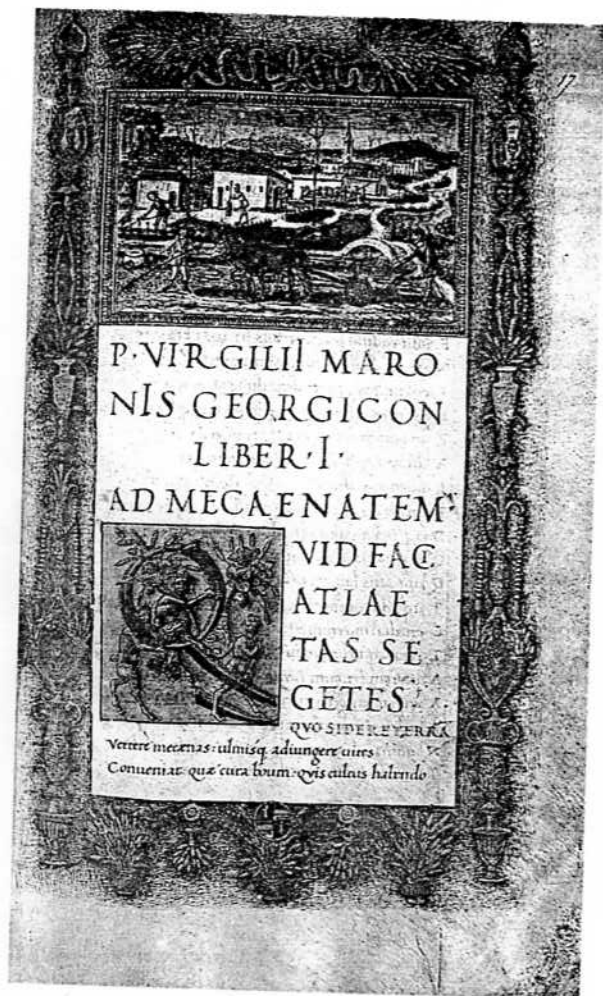 17
P·VIRGILII MARO
NIS GEORGICON
LIBER·I·
AD MECAENATEM·
QVID FACI
AT LAE
TAS SE
GETES
QVO SIDERE TERRA
Vertere mecænas: ulmisq adiungere uites
Conveniat: quæ cura boum: qvis cultus habendo